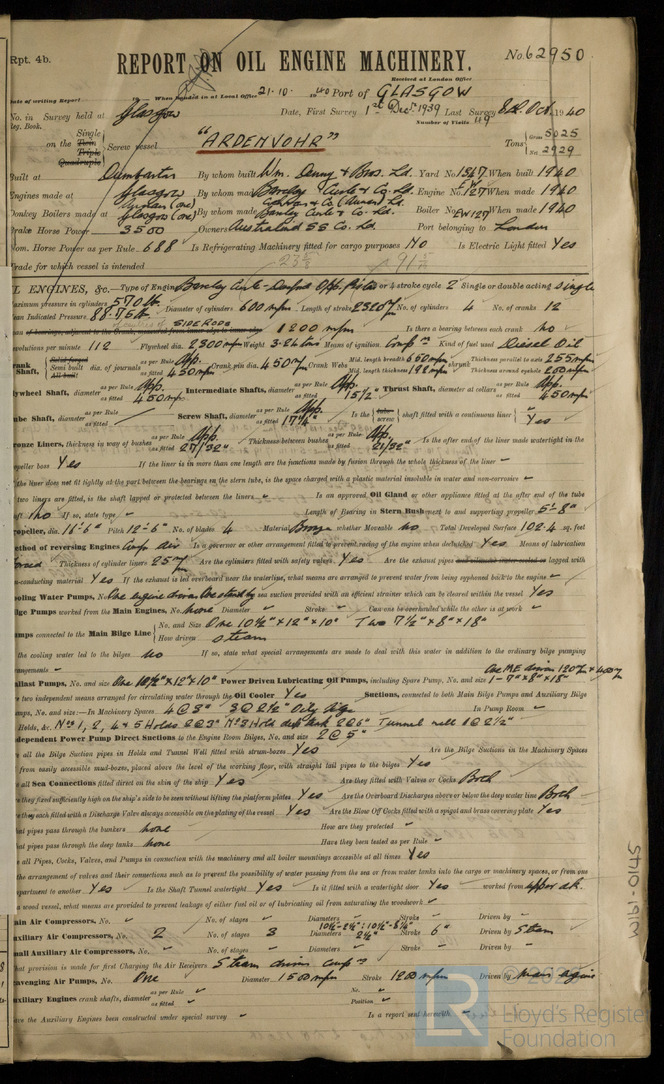 Rpt. 4b.
REPORT ON OIL ENGINE MACHINERY.
No. 62950
Received at London Office
Date of writing Report When handed in at Local Office 21.10.1940 Port of GLASGOW
No. in Survey held at Glasgow Date, First Survey 1st Dec. 1939 Last Survey 8th Oct. 1940
Reg. Book. Number of Visits 119
on the Single Twin Triple Quadruple Screw vessel "ARDENVOHR" Tons Gross 5025 Net 2929
Built at Dumbarton By whom built Wm. Denny & Bros. Ld. Yard No. 1347 When built 1940
Engines made at Glasgow By whom made Barclay Curle & Co. Ld. Engine No. EW127 When made 1940
Donkey Boilers made at Glasgow (one) By whom made Barclay Curle & Co. Ld. Boiler No. EW127 When made 1940
Brake Horse Power 3500 Owners Australind SS Co. Ld. Port belonging to London
Nom. Horse Power as per Rule 688 Is Refrigerating Machinery fitted for cargo purposes No Is Electric Light fitted Yes
Trade for which vessel is intended
OIL ENGINES, &c.—Type of Engines Barclay Curle-Doxford Opp. Piston 2 or 4 stroke cycle 2 Single or double acting single
Maximum pressure in cylinders 570 lb. Diameter of cylinders 600 m/m Length of stroke 2320 m/m No. of cylinders 4 No. of cranks 12
Mean Indicated Pressure 88.75 lb.
SIDE RODS 1200 m/m Is there a bearing between each crank No
Revolutions per minute 112 Flywheel dia. 2300 m/m Weight 3.26 tons Means of ignition Compn. Kind of fuel used Diesel Oil
Crank Shaft, Solid forged Semi built All built dia. of journals as per Rule App. as fitted 450 m/m Crank pin dia. 450 m/m Crank Webs Mid. length breadth 650 m/m Thickness parallel to axis 255 m/m
Mid. length thickness 192 m/m shrunk Thickness around eyehole 200 m/m
Flywheel Shaft, diameter as per Rule App. as fitted 450 m/m Intermediate Shafts, diameter as per Rule App. as fitted 15 1/2" Thrust Shaft, diameter at collars as per Rule App. as fitted 450 m/m
Tube Shaft, diameter as per Rule as fitted Screw Shaft, diameter as per Rule App. as fitted 17 1/4" Is the tube screw shaft fitted with a continuous liner Yes
Bronze Liners, thickness in way of bushes as per Rule App. as fitted 27/32" Thickness between bushes as per Rule App. as fitted 21/32" Is the after end of the liner made watertight in the
propeller boss Yes If the liner is in more than one length are the junctions made by fusion through the whole thickness of the liner
If the liner does not fit tightly at the part between the bearings in the stern tube, is the space charged with a plastic material insoluble in water and non-corrosive
If two liners are fitted, is the shaft lapped or protected between the liners Is an approved Oil Gland or other appliance fitted at the after end of the tube
shaft No If so, state type Length of Bearing in Stern Bush next to and supporting propeller 5'-8"
Propeller, dia. 11'-6" Pitch 12'-6" No. of blades 4 Material Bronze whether Moveable No Total Developed Surface 102.4 sq. feet
Method of reversing Engines Comp. Air Is a governor or other arrangement fitted to prevent racing of the engine when declutched Yes Means of lubrication
Forced Thickness of cylinder liners 25 m/m Are the cylinders fitted with safety valves Yes Are the exhaust pipes lagged with
non-conducting material Yes If the exhaust is led overboard near the waterline, what means are arranged to prevent water from being syphoned back to the engine
Cooling Water Pumps, No. One engine driven One standby Is the sea suction provided with an efficient strainer which can be cleared within the vessel Yes
Bilge Pumps worked from the Main Engines, No. None Diameter Stroke Can one be overhauled while the other is at work
Pumps connected to the Main Bilge Line No. and Size One 10 1/2" × 12" × 10" Two 7 1/2" × 8" × 18"
How driven steam
Is the cooling water led to the bilges No If so, state what special arrangements are made to deal with this water in addition to the ordinary bilge pumping
arrangements
Ballast Pumps, No. and size One 10 1/2" × 12" × 10" Power Driven Lubricating Oil Pumps, including Spare Pump, No. and size One ME driven 120 m/m × 400 m/m 1 - 7" × 8" × 18"
Are two independent means arranged for circulating water through the Oil Cooler Yes Suctions, connected to both Main Bilge Pumps and Auxiliary Bilge
Pumps, No. and size:—In Machinery Spaces 4 @ 3" 3 @ 2 1/2" Oily bilge In Pump Room
In Holds, &c. Nos 1, 2, 4 & 5 Holds 2 @ 3" No 3 Hold deep tank 2 @ 6" Tunnel well 1 @ 2 1/2"
Independent Power Pump Direct Suctions to the Engine Room Bilges, No. and size 2 @ 5"
Are all the Bilge Suction pipes in Holds and Tunnel Well fitted with strum-boxes Yes Are the Bilge Suctions in the Machinery Spaces
led from easily accessible mud-boxes, placed above the level of the working floor, with straight tail pipes to the bilges Yes
Are all Sea Connections fitted direct on the skin of the ship Yes Are they fitted with Valves or Cocks Both
Are they fixed sufficiently high on the ship's side to be seen without lifting the platform plates Yes Are the Overboard Discharges above or below the deep water line Both
Are they each fitted with a Discharge Valve always accessible on the plating of the vessel Yes Are the Blow Off Cocks fitted with a spigot and brass covering plate Yes
What pipes pass through the bunkers None How are they protected
What pipes pass through the deep tanks None Have they been tested as per Rule
Are all Pipes, Cocks, Valves, and Pumps in connection with the machinery and all boiler mountings accessible at all times Yes
Is the arrangement of valves and their connections such as to prevent the possibility of water passing from the sea or from water tanks into the cargo or machinery spaces, or from one
compartment to another Yes Is the Shaft Tunnel watertight Yes Is it fitted with a watertight door Yes worked from upper dk.
If a wood vessel, what means are provided to prevent leakage of either fuel oil or of lubricating oil from saturating the woodwork
Main Air Compressors, No. No. of stages Diameters Stroke Driven by
Auxiliary Air Compressors, No. 2 No. of stages 3 Diameters 2 1/2" Stroke 6" Driven by Steam
Small Auxiliary Air Compressors, No. No. of stages Diameters Stroke Driven by
What provision is made for first Charging the Air Receivers Steam driven compr.
Scavenging Air Pumps, No. One Diameter 1500 m/m Stroke 1200 m/m Driven by Main engine
Auxiliary Engines crank shafts, diameter as per Rule as fitted No. Position
Have the Auxiliary Engines been constructed under special survey Is a report sent herewith
W161-0145
LR Lloyd's Register Foundation